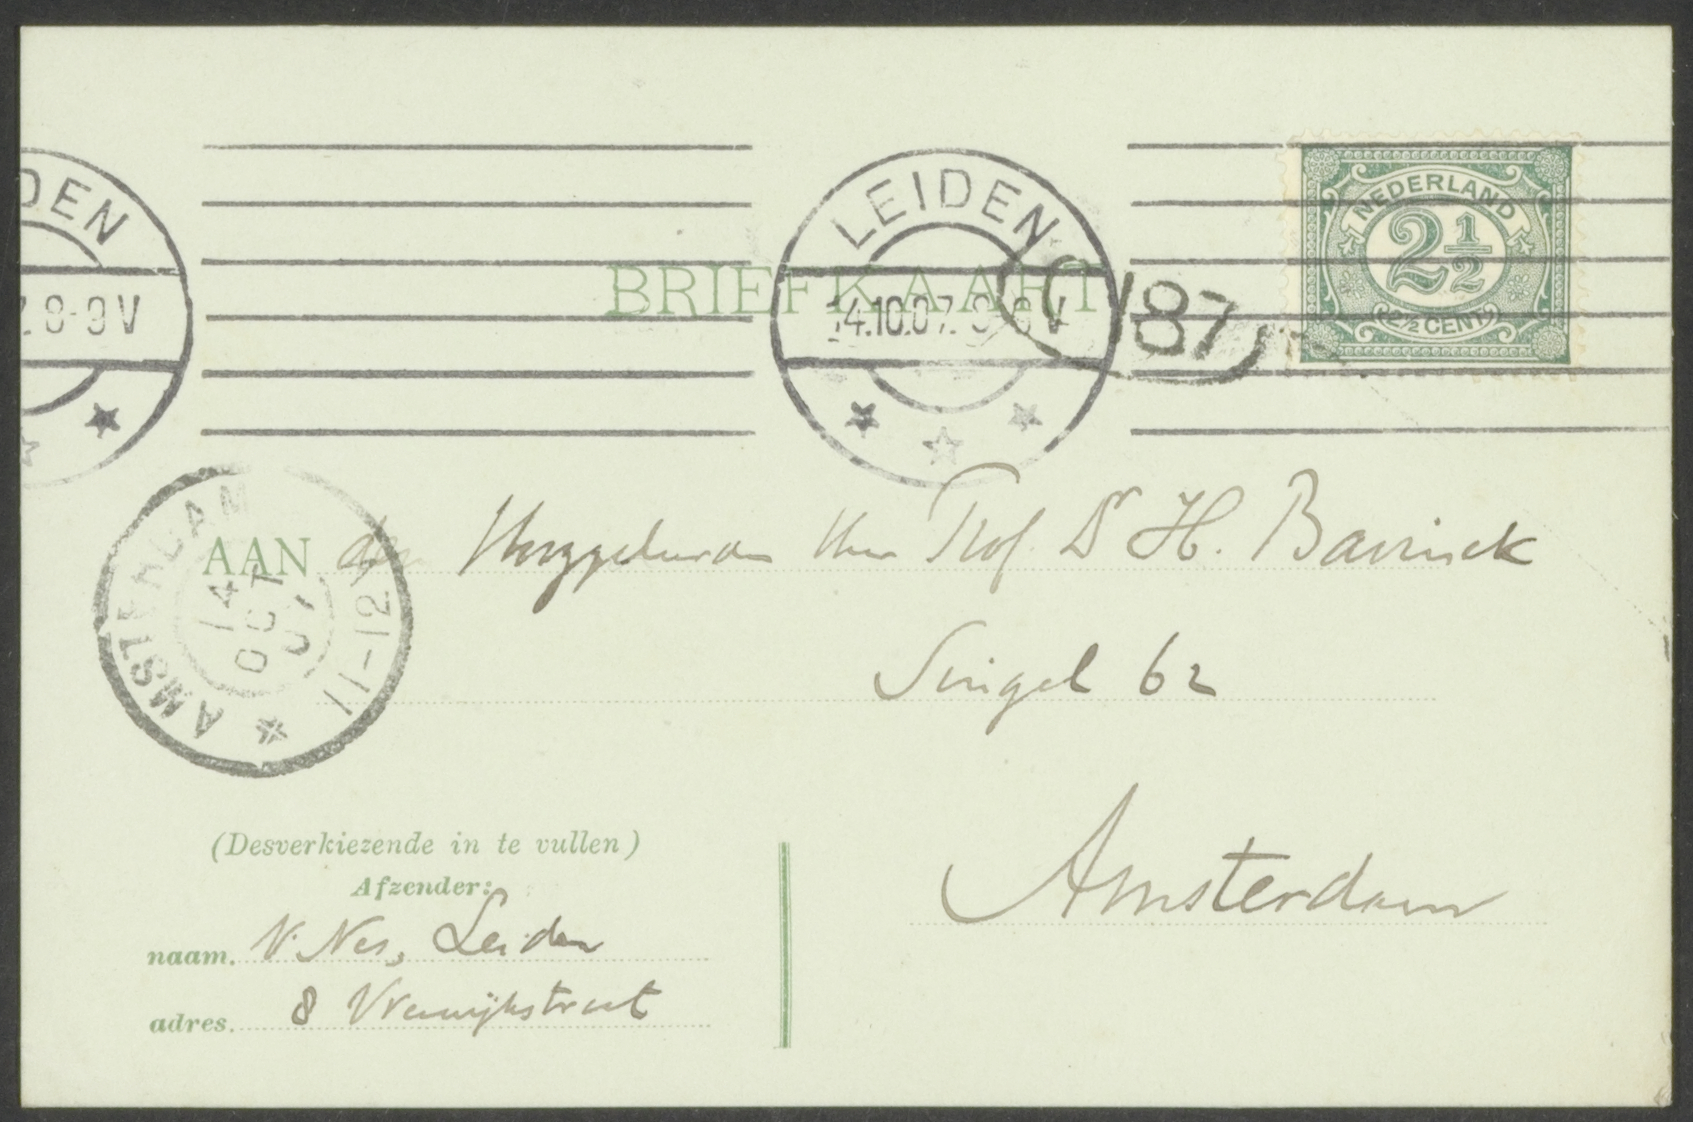 LEIDEN
14.10.07. 8-9V
DEN
7. 8-9V
187
NEDERLAND
2½
2½ CENT
BRIEFKAART
AMSTERDAM
14 OCT 07
11-12
AAN den Hooggeleerden Heer Prof. Dr H. Bavinck
Singel 62
Amsterdam
(Desverkiezende in te vullen)
Afzender:
naam. V. Nes, Leiden
adres. 8 Vreewijkstraat